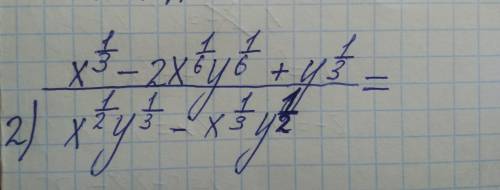 x^{\frac{1}{3}} - 2x^{\frac{1}{6}}y^{\frac{1}{6}} + y^{\frac{1}{3}} =
2) x^{\frac{1}{2}}y^{\frac{1}{3}} - x^{\frac{1}{3}}y^{\frac{1}{2}}